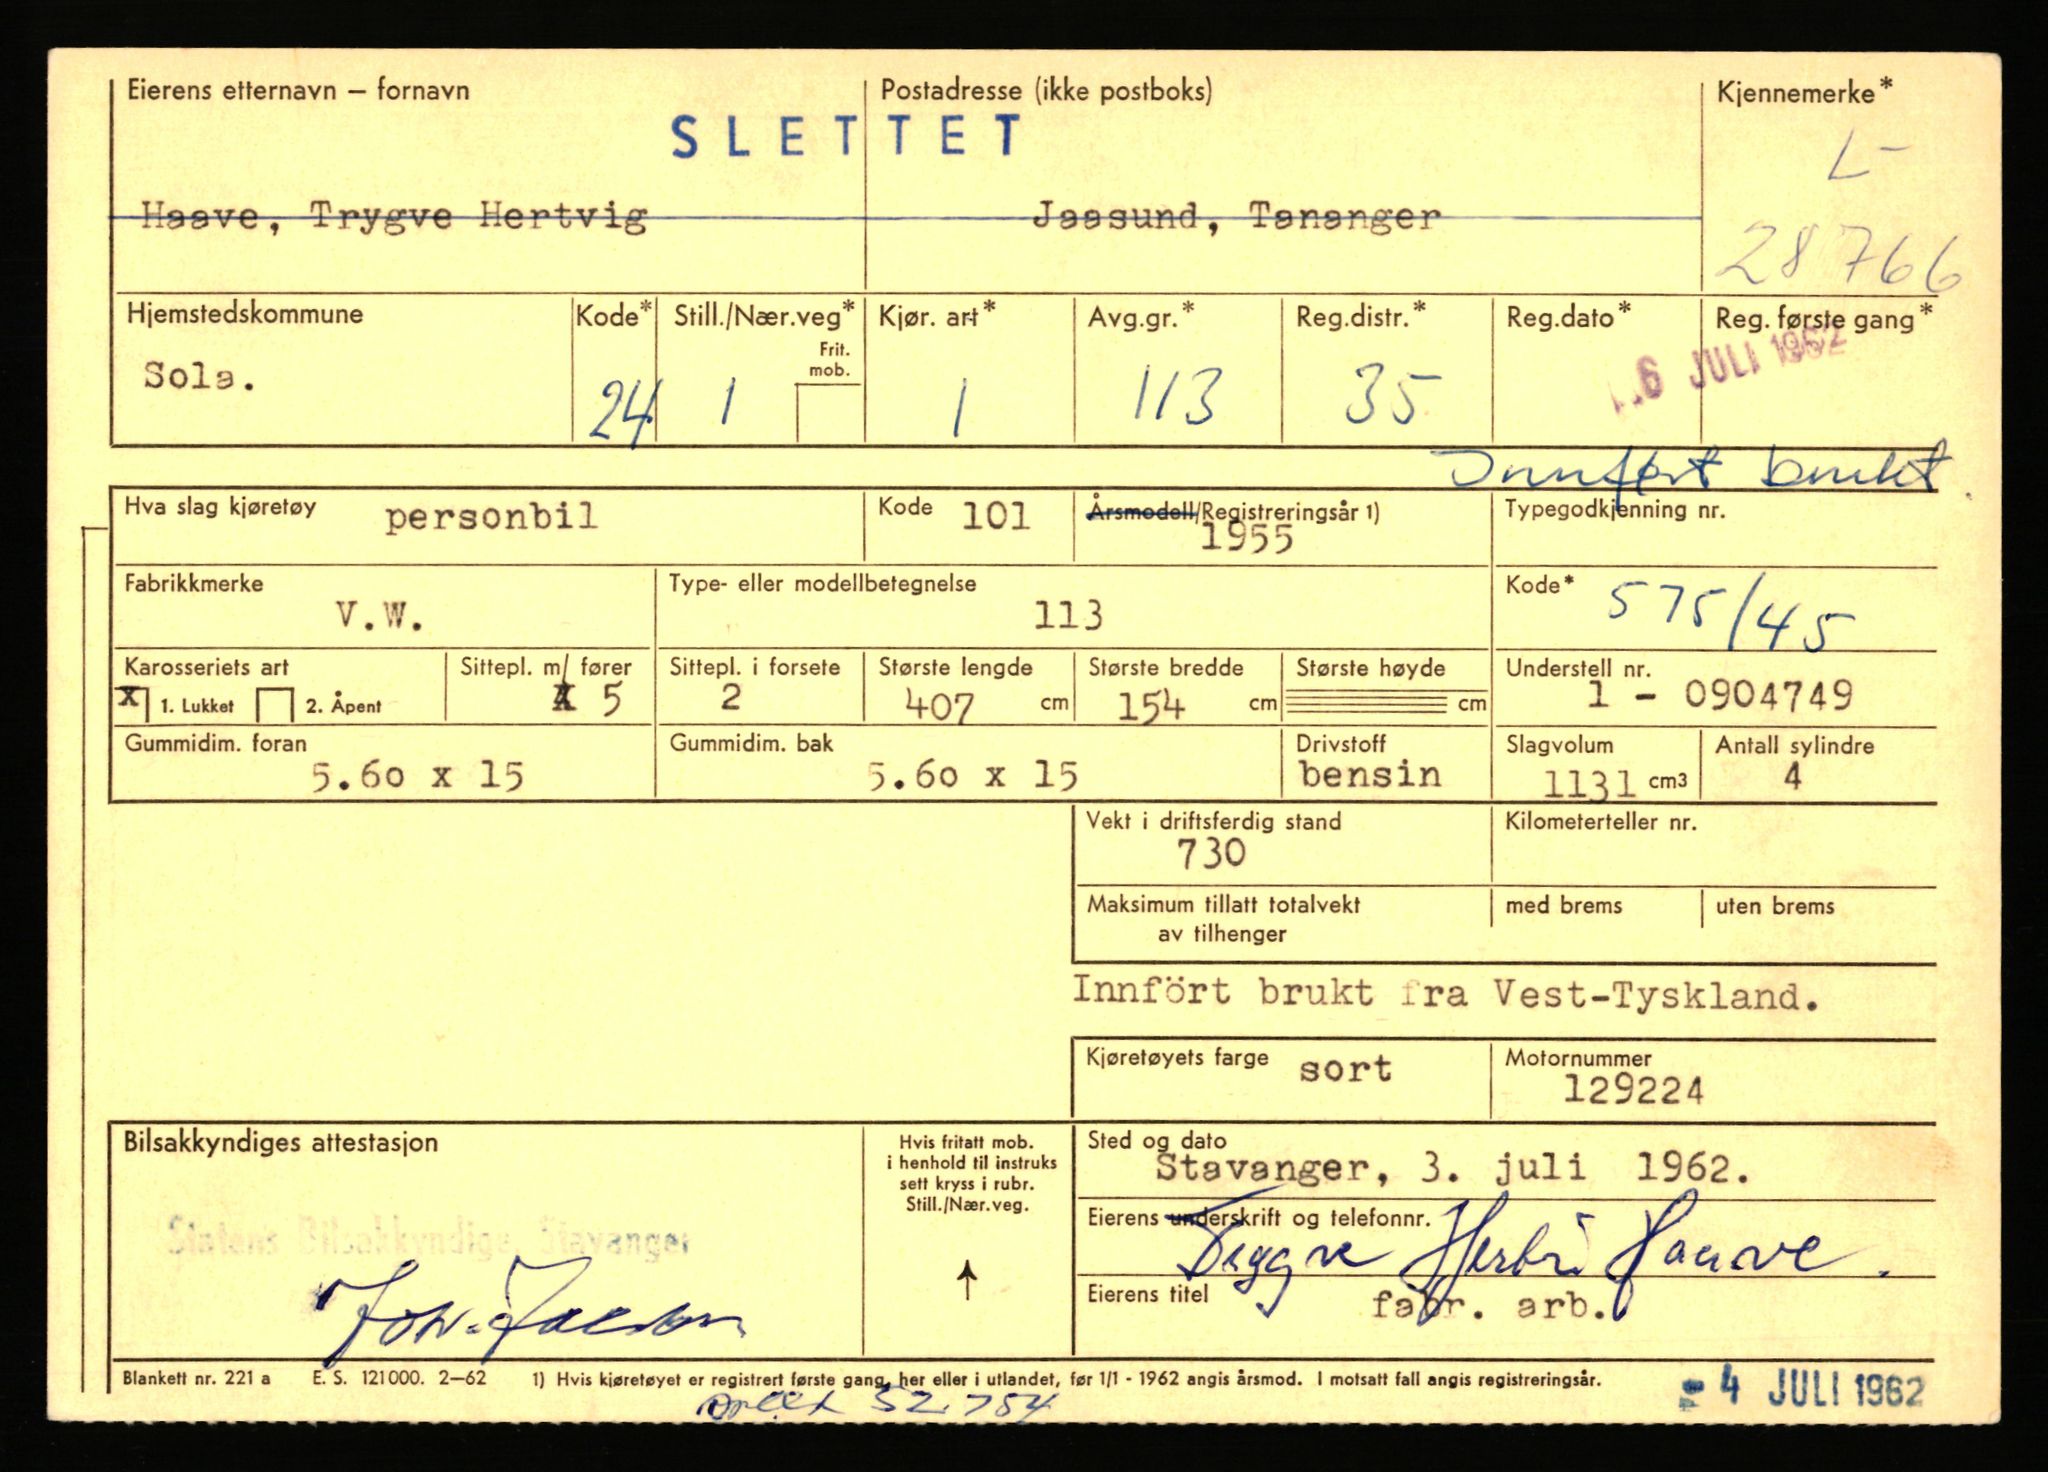 Eierens etternavn – fornavn Postadresse (ikke postboks) Kjennemerke*
SLETTET L-
Haave, Trygve Hertvig Jaasund, Tananger
28766
Hjemstedskommune Kode* Still./Nær.veg* Kjør. art* Avg.gr.* Reg.distr.* Reg.dato* Reg. første gang*
Frit. mob.
6 JULI 1962
Sola. 24 1 1 113 35
Innført brukt.
Hva slag kjøretøy personbil Kode 101 Årsmodell/Registreringsår 1) Typegodkjenning nr.
1955
Fabrikkmerke Type- eller modellbetegnelse Kode* 575/45
V.W. 113
Karosseriets art Sittepl. m/ fører Sittepl. i forsete Største lengde Største bredde Største høyde Understell nr.
x 1. Lukket 2. Åpent 5 2 407 cm 154 cm cm 1 - 0904749
Gummidim. foran Gummidim. bak Drivstoff Slagvolum Antall sylindre
5.60 x 15 5.60 x 15 bensin 1131 cm3 4
Vekt i driftsferdig stand Kilometerteller nr.
730
Maksimum tillatt totalvekt med brems uten brems
av tilhenger
Innfört brukt fra Vest-Tyskland.
Kjøretøyets farge sort Motornummer
129224
Bilsakkyndiges attestasjon Hvis fritatt mob. Sted og dato
i henhold til instruks Stavanger, 3. juli 1962.
sett kryss i rubr.
Still./Nær.veg. Eierens underskrift og telefonnr.
Statens Bilsakkyndige, Stavanger
Eierens titel fabr. arb.
Blankett nr. 221 a E. S. 121000. 2–62 1) Hvis kjøretøyet er registrert første gang, her eller i utlandet, før 1/1 - 1962 angis årsmod. I motsatt fall angis registreringsår.
- 4 JULI 1962
52.754